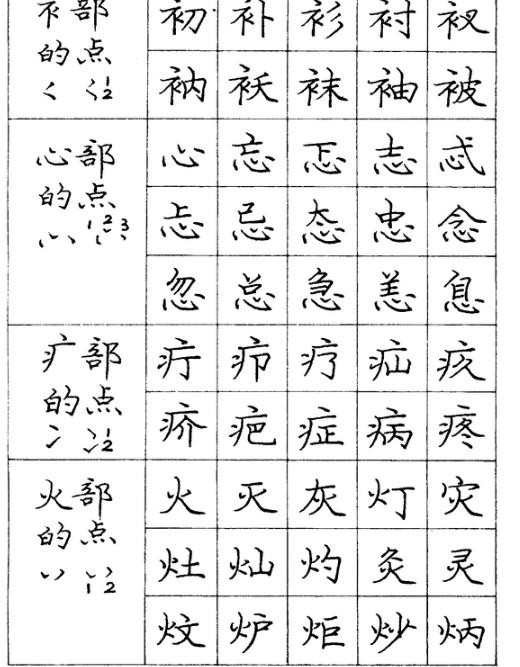 衤部 初 补 衫 衬 衩
的点 衲 袄 袜 袖 被
1 2
心部 心 忘 忑 志 忒
的点 忐 忌 态 忠 念
1 2 3
忽 总 急 恙 息
疒部 疔 疖 疗 疝 疚
的点 疥 疤 症 病 疼
1 2
火部 火 灭 灰 灯 灾
的点 灶 灿 灼 灸 灵
1 2
炆 炉 炬 炒 炳